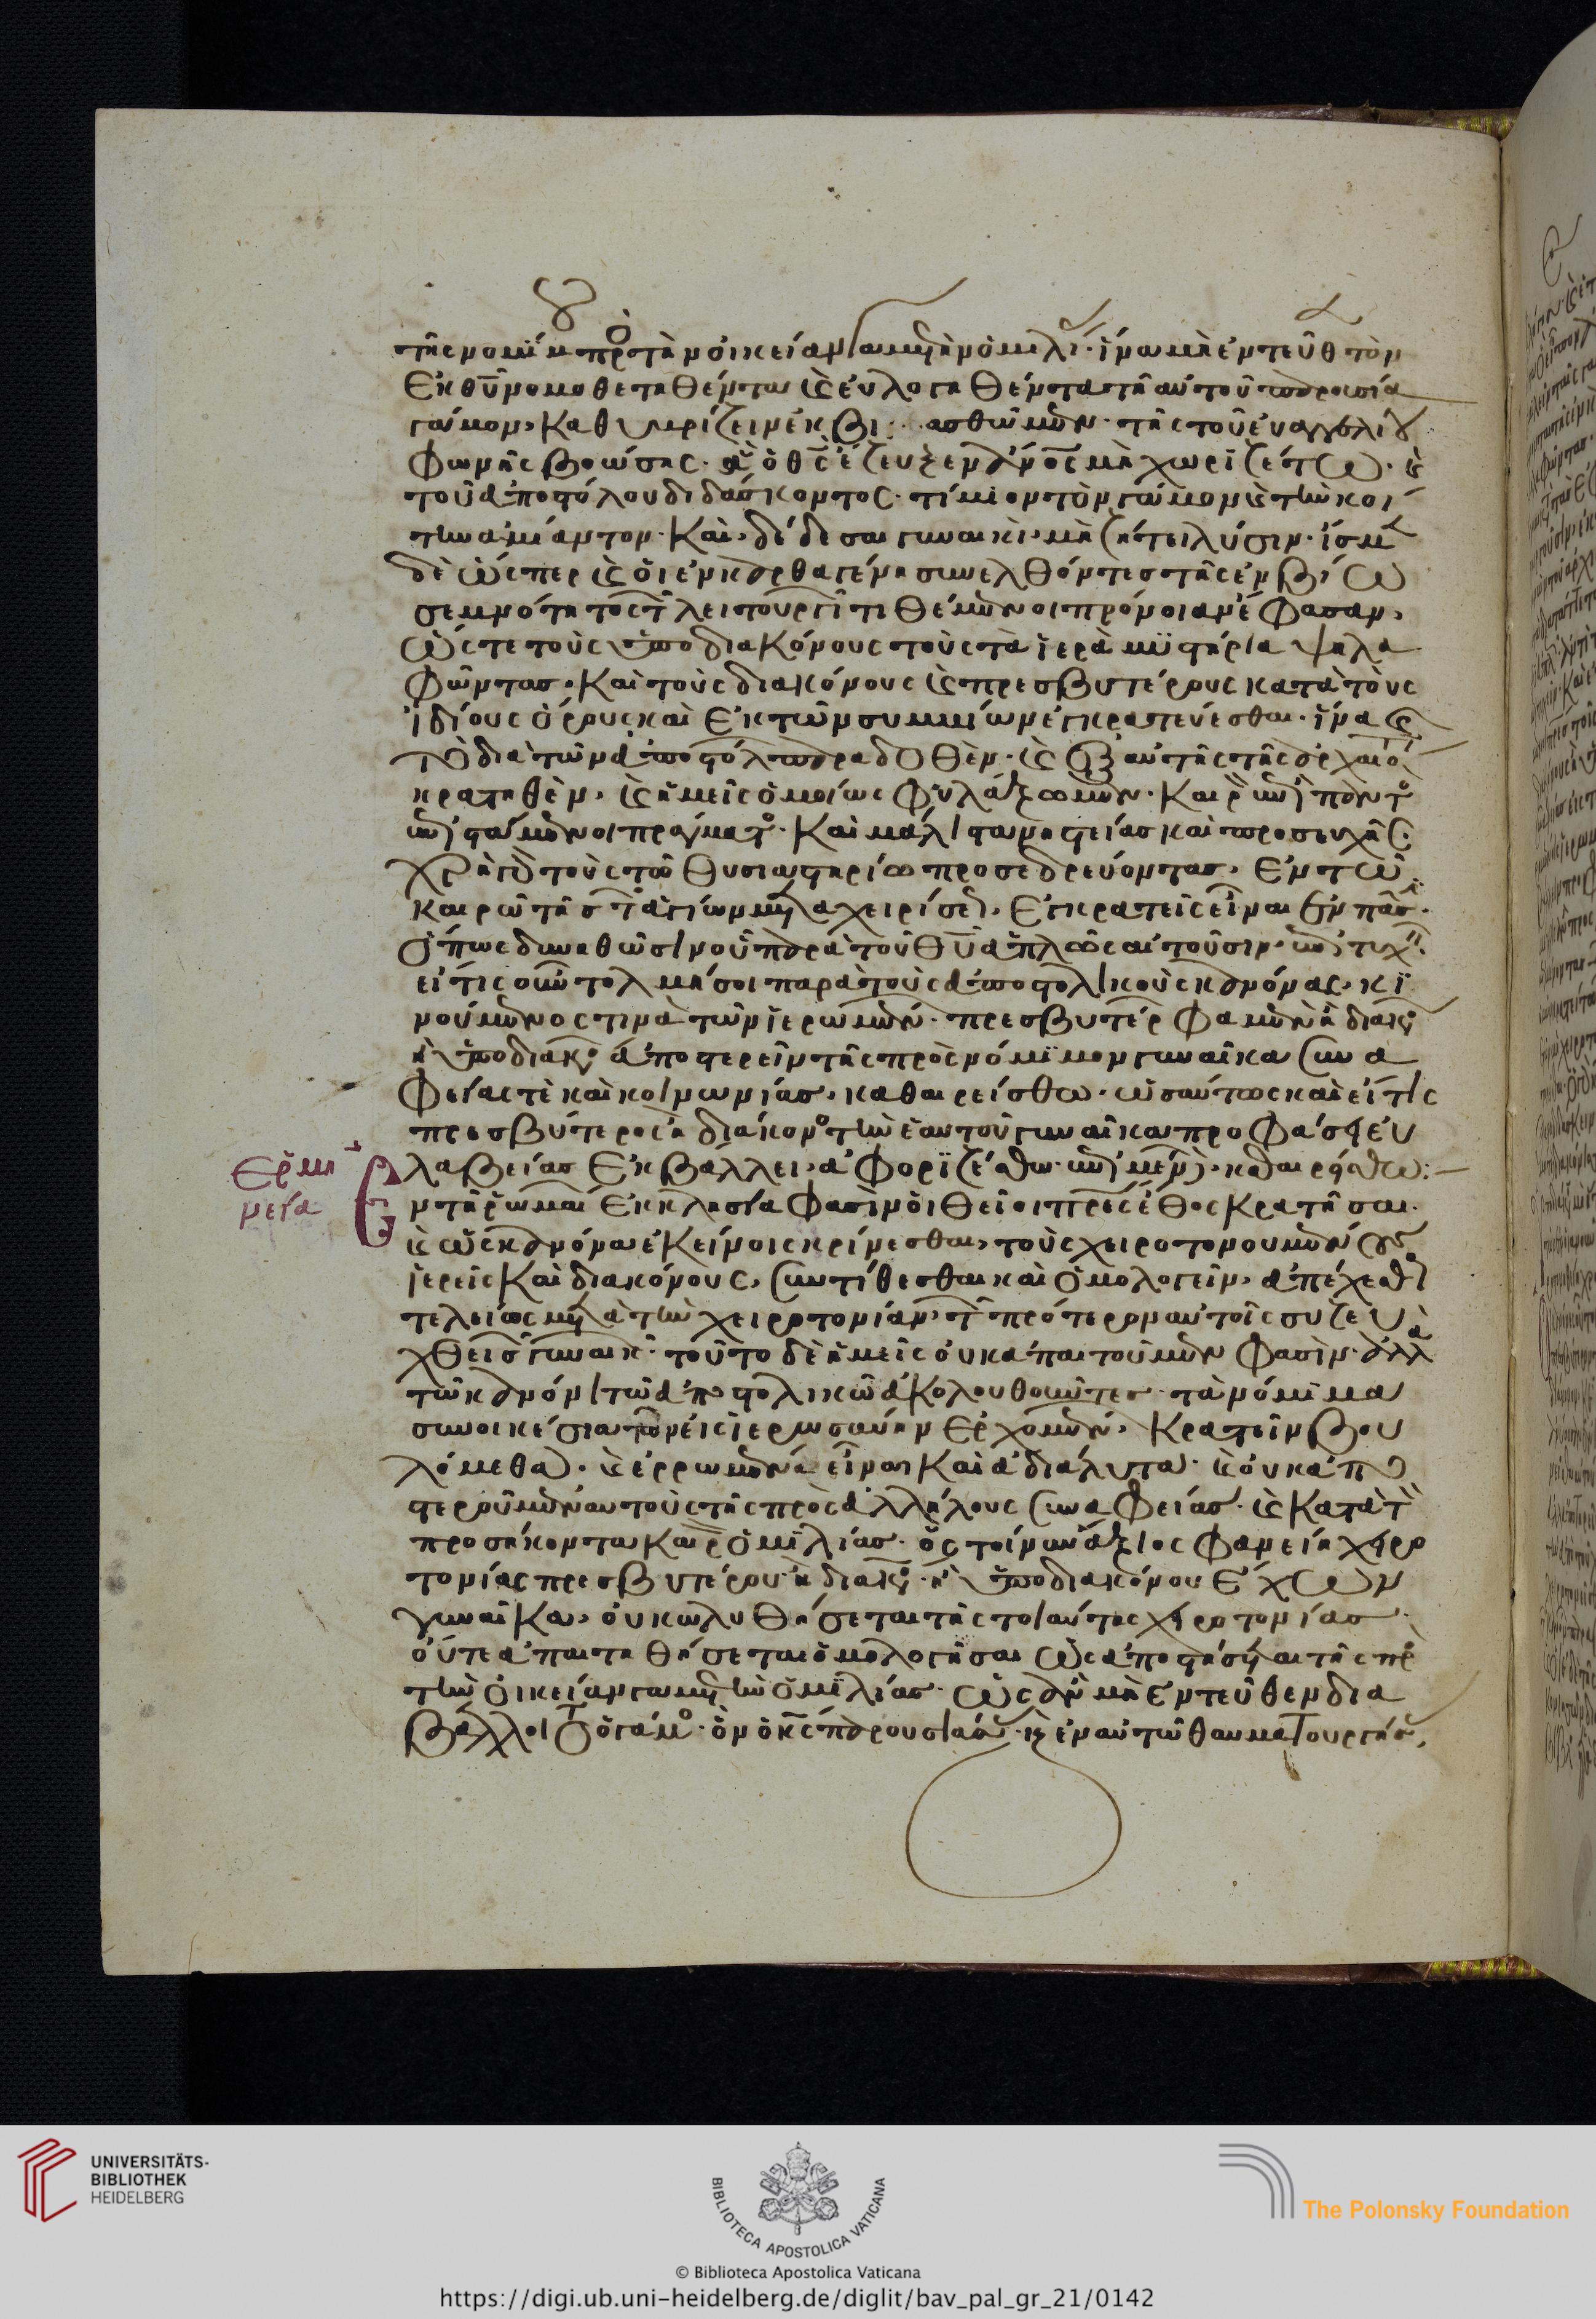 τῆς νομίμου πρὸς τὴν οἰκείαν γαμετὴν ὁμιλί· ἵνα μὴ ἐντεῦθεν τὸν
ἐκ θῦ νομοθετηθέντα καὶ εὐλογηθέντα τῆ αὐτοῦ παρουσία
γάμον, καθυβρίζειν ἐκβι..ασθῶμεν· τῆς τοῦ εὐαγγελίου
φωνῆς βοώσης· ἃ ὁ θς ἔζευξεν ἄνος μὴ χωριζέτω· καὶ
τοῦ ἀποστόλου διδάσκοντος· τίμιον τὸν γάμον καὶ τὴν κοί
την ἀμίαντον· καὶ, δέδεσαι γυναικὶ, μὴ ζήτει λύσιν· ἴσμεν
δὲ ὥσπερ καὶ οἱ ἐν καρθαγένη συνελθόντες τῆς ἐν βίω
σεμνότητος τῶν λειτουργῶν τιθέμενοι πρόνοιαν ἔφασαν,
ὥστε τοὺς ὑποδιακόνους τοὺς τὰ ἱερὰ μυστήρια ψηλα
φῶντας, καὶ τοὺς διακόνους καὶ πρεσβυτέρους κατὰ τοὺς
ἰδίους ὅρους καὶ ἐκ τῶν συμβίων ἐγκρατεύεσθαι· ἵνα καὶ
τὸ διὰ τῶν ἀποστόλων παραδοθὲν· καὶ ἐξ αὐτῆς τῆς ἀρχαιό
κρατηθὲν, καὶ ἡμεῖς ὁμοίως φυλάξωμεν· καιρὸν ἐπὶ παντὸς
ἐπιστάμενοι πράγματος· καὶ μάλιστα νηστείας καὶ προσευχῆς·
χρὴ γὰρ τοὺς τῶ θυσιαστηρίω προσεδρεύοντας, ἐν τῶ
καιρῶ τῆς τῶν ἁγίων μεταχειρίσεως, ἐγκρατεῖς εἶναι ἐν πᾶσιν·
ὅπως δυνηθῶσιν οὗ παρὰ τοῦ θῦ ἁπλῶς αἰτοῦσιν, ἐπιτυχεῖν·
εἴ τις οὖν τολμήσοι παρὰ τοὺς ἀποστολικοὺς κανόνας, κι
νούμενος τινὰ τῶν ἱερωμένων· πρεσβυτέρων φαμὲν ἢ διακόνων
ἢ ὑποδιακόνων ἀποστερεῖν τῆς πρὸς νόμιμον γυναῖκα συνα
φείας τὲ καὶ κοινωνίας, καθαιρείσθω· ὡσαύτως καὶ εἴ τις
πρεσβύτερος ἢ διάκονος τὴν ἑαυτοῦ γυναῖκα προφάσει εὐ
λαβείας ἐκβάλλει, ἀφοριζέσθω· ἐπιμένων, καθαιρείσθω:
Ἑρμη
νεία
Ἐν τῆ ρώμαίων ἐκκλησία φασὶν οἱ θεῖοι πρες ἔθος κρατῆσαι.
καὶ ὡς κανόνα ἐκείνοις κρίνεσθαι, τοὺς χειροτονουμένους
ἱερεῖς καὶ διακόνους, συντίθεσθαι καὶ ὁμολογεῖν, ἀπέχεσθαι
τελείως μετὰ τὴν χειροτονίαν, τῶν πρότερον αὐτοῖς συζευ
χθεισῶν γυναικῶν· τοῦτο δὲ ἡμεῖς οὐκ ἀπαιτοῦμεν φασὶν· ἀλλὰ
τῶ κανόνι τῶ ἀποστολικῶ ἀκολουθοῦντες τὰ νόμιμα
συνοικέσια τῶν εἰς ἱερωσύνην ἐρχομένων, κρατεῖν βου
λόμεθα· καὶ ἐρρωμένα εἶναι καὶ ἀδιάλυτα· καὶ οὐκ ἀπο
στεροῦμεν αὐτοὺς τῆς πρὸς ἀλλήλους συναφείας· καὶ κατὰ τὸν
προσήκοντα καιρὸν ὁμιλίας· ὅς τοίνυν ἄξιος φανείη χειρο
τονίας πρεσβυτέρου ἢ διακόνου· ἢ ὑποδιακόνου ἔχων
γυναῖκα, οὐ κωλυθήσεται τῆς τοιαύτης χειροτονίας·
οὔτε ἀπαιτηθήσεται ὁμολογῆσαι ὡς ἀποστήσεται τῆς πρὸς
τὴν οἰκείαν γαμετὴν ὁμιλίας· ὡς ἂν μὴ ἐντεῦθεν δια
βάλλοιτο ὁ γάμος· ὃν ὁ κς παρουσιάσας· καὶ ἐν αὐτῶ θαυματουργήσας,
UNIVERSITÄTS-
BIBLIOTHEK
HEIDELBERG
BIBLIOTECA APOSTOLICA VATICANA
The Polonsky Foundation
© Biblioteca Apostolica Vaticana
https://digi.ub.uni-heidelberg.de/diglit/bav_pal_gr_21/0142